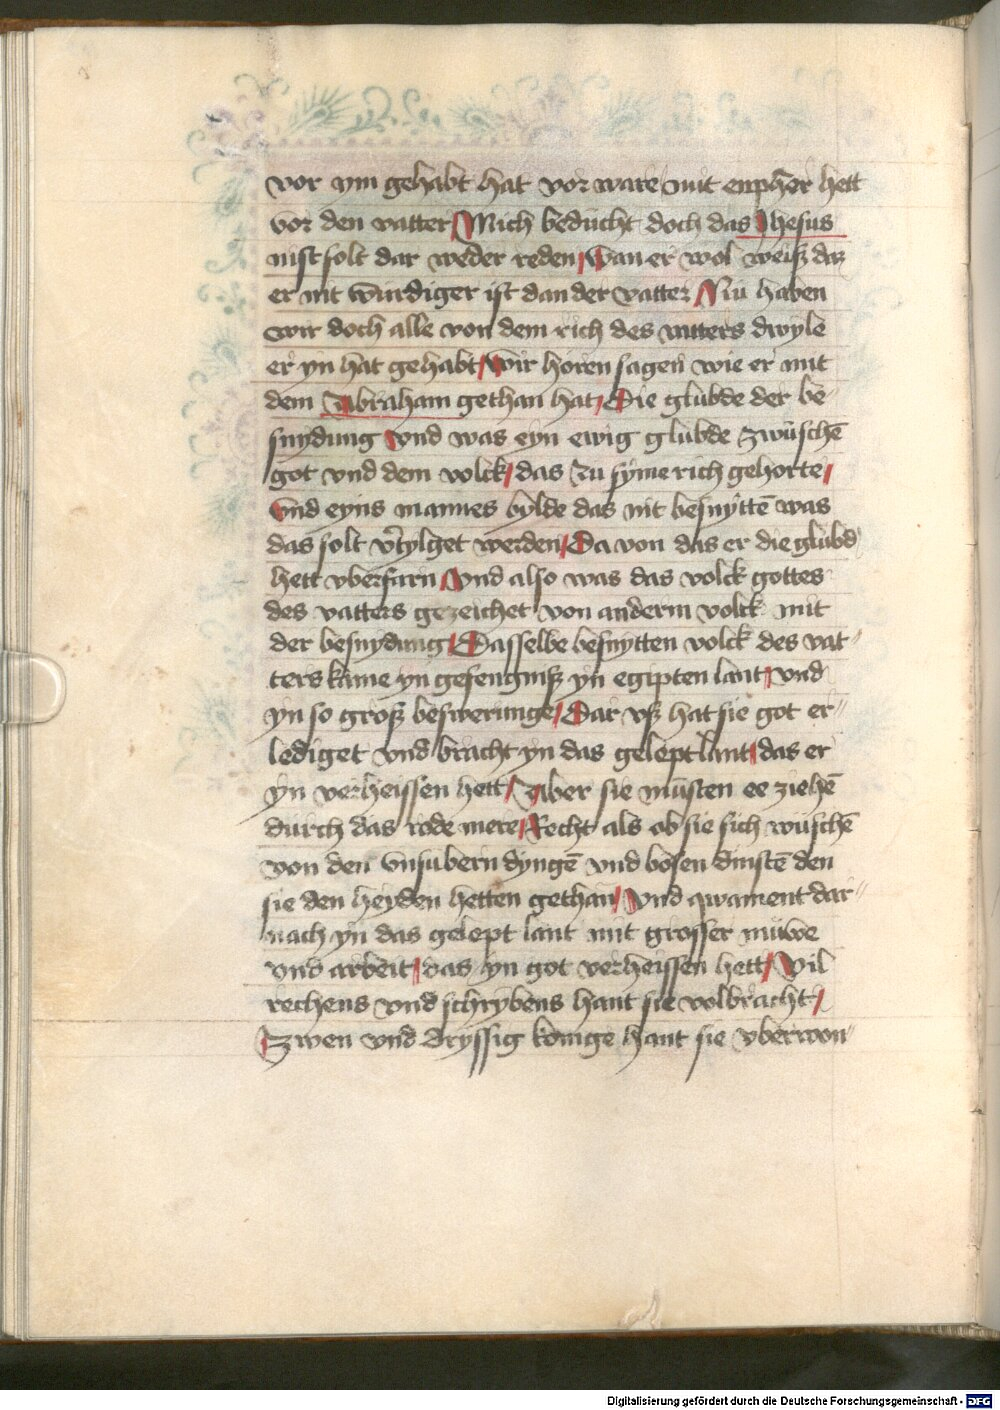 vor ym gehabt hat vor ware mit enpher hett
vor den vatter Mich beducht doch das Jhesus
nist solt dar weder reden Wan er wol weisz daz
er nit wurdiger ist dan der vatter Nu haben
wir doch alle von dem rich des vatters dwyle
er yn hat gehabt wir horen sagen wie er mit
dem Abraham gethan hat Die glubde der be-
snydung vnd was eyn ewig glubde zwüschē
got vnd dem volck das zu syme rich gehorte
vnd eyns mannes bylde das nit besnyttē was
das solt v̓tylget werden Da von das er die glubd
hett vberfarn Vnd also was das volck gottes
des vatters gezeichet von anderm volck mit
der besnydung Dasselbe besnytten volck des vat-
ters kame yn gefengnisz yn egipten lant vnd
yn so grosz beswerunge Dar vsz hat sie got er-
lediget vnd bracht yn das gelept lant das er
yn verheissen hett Aber sie müsten ee ziehē
durch das rode mere Recht als ob sie sich wüschē
von den vnsubern dyngē vnd bosen dinstē den
sie den heyden hetten gethan Vnd qwament dar-
nach yn das gelept lant mit grosser müwe
vnd arbeit das yn got verheissen hett Vil
rechens vnd schrybens hant sie volbracht
Zwen vnd dryssig konige hant sie vberwon-
Digitalisierung gefördert durch die Deutsche Forschungsgemeinschaft - DFG